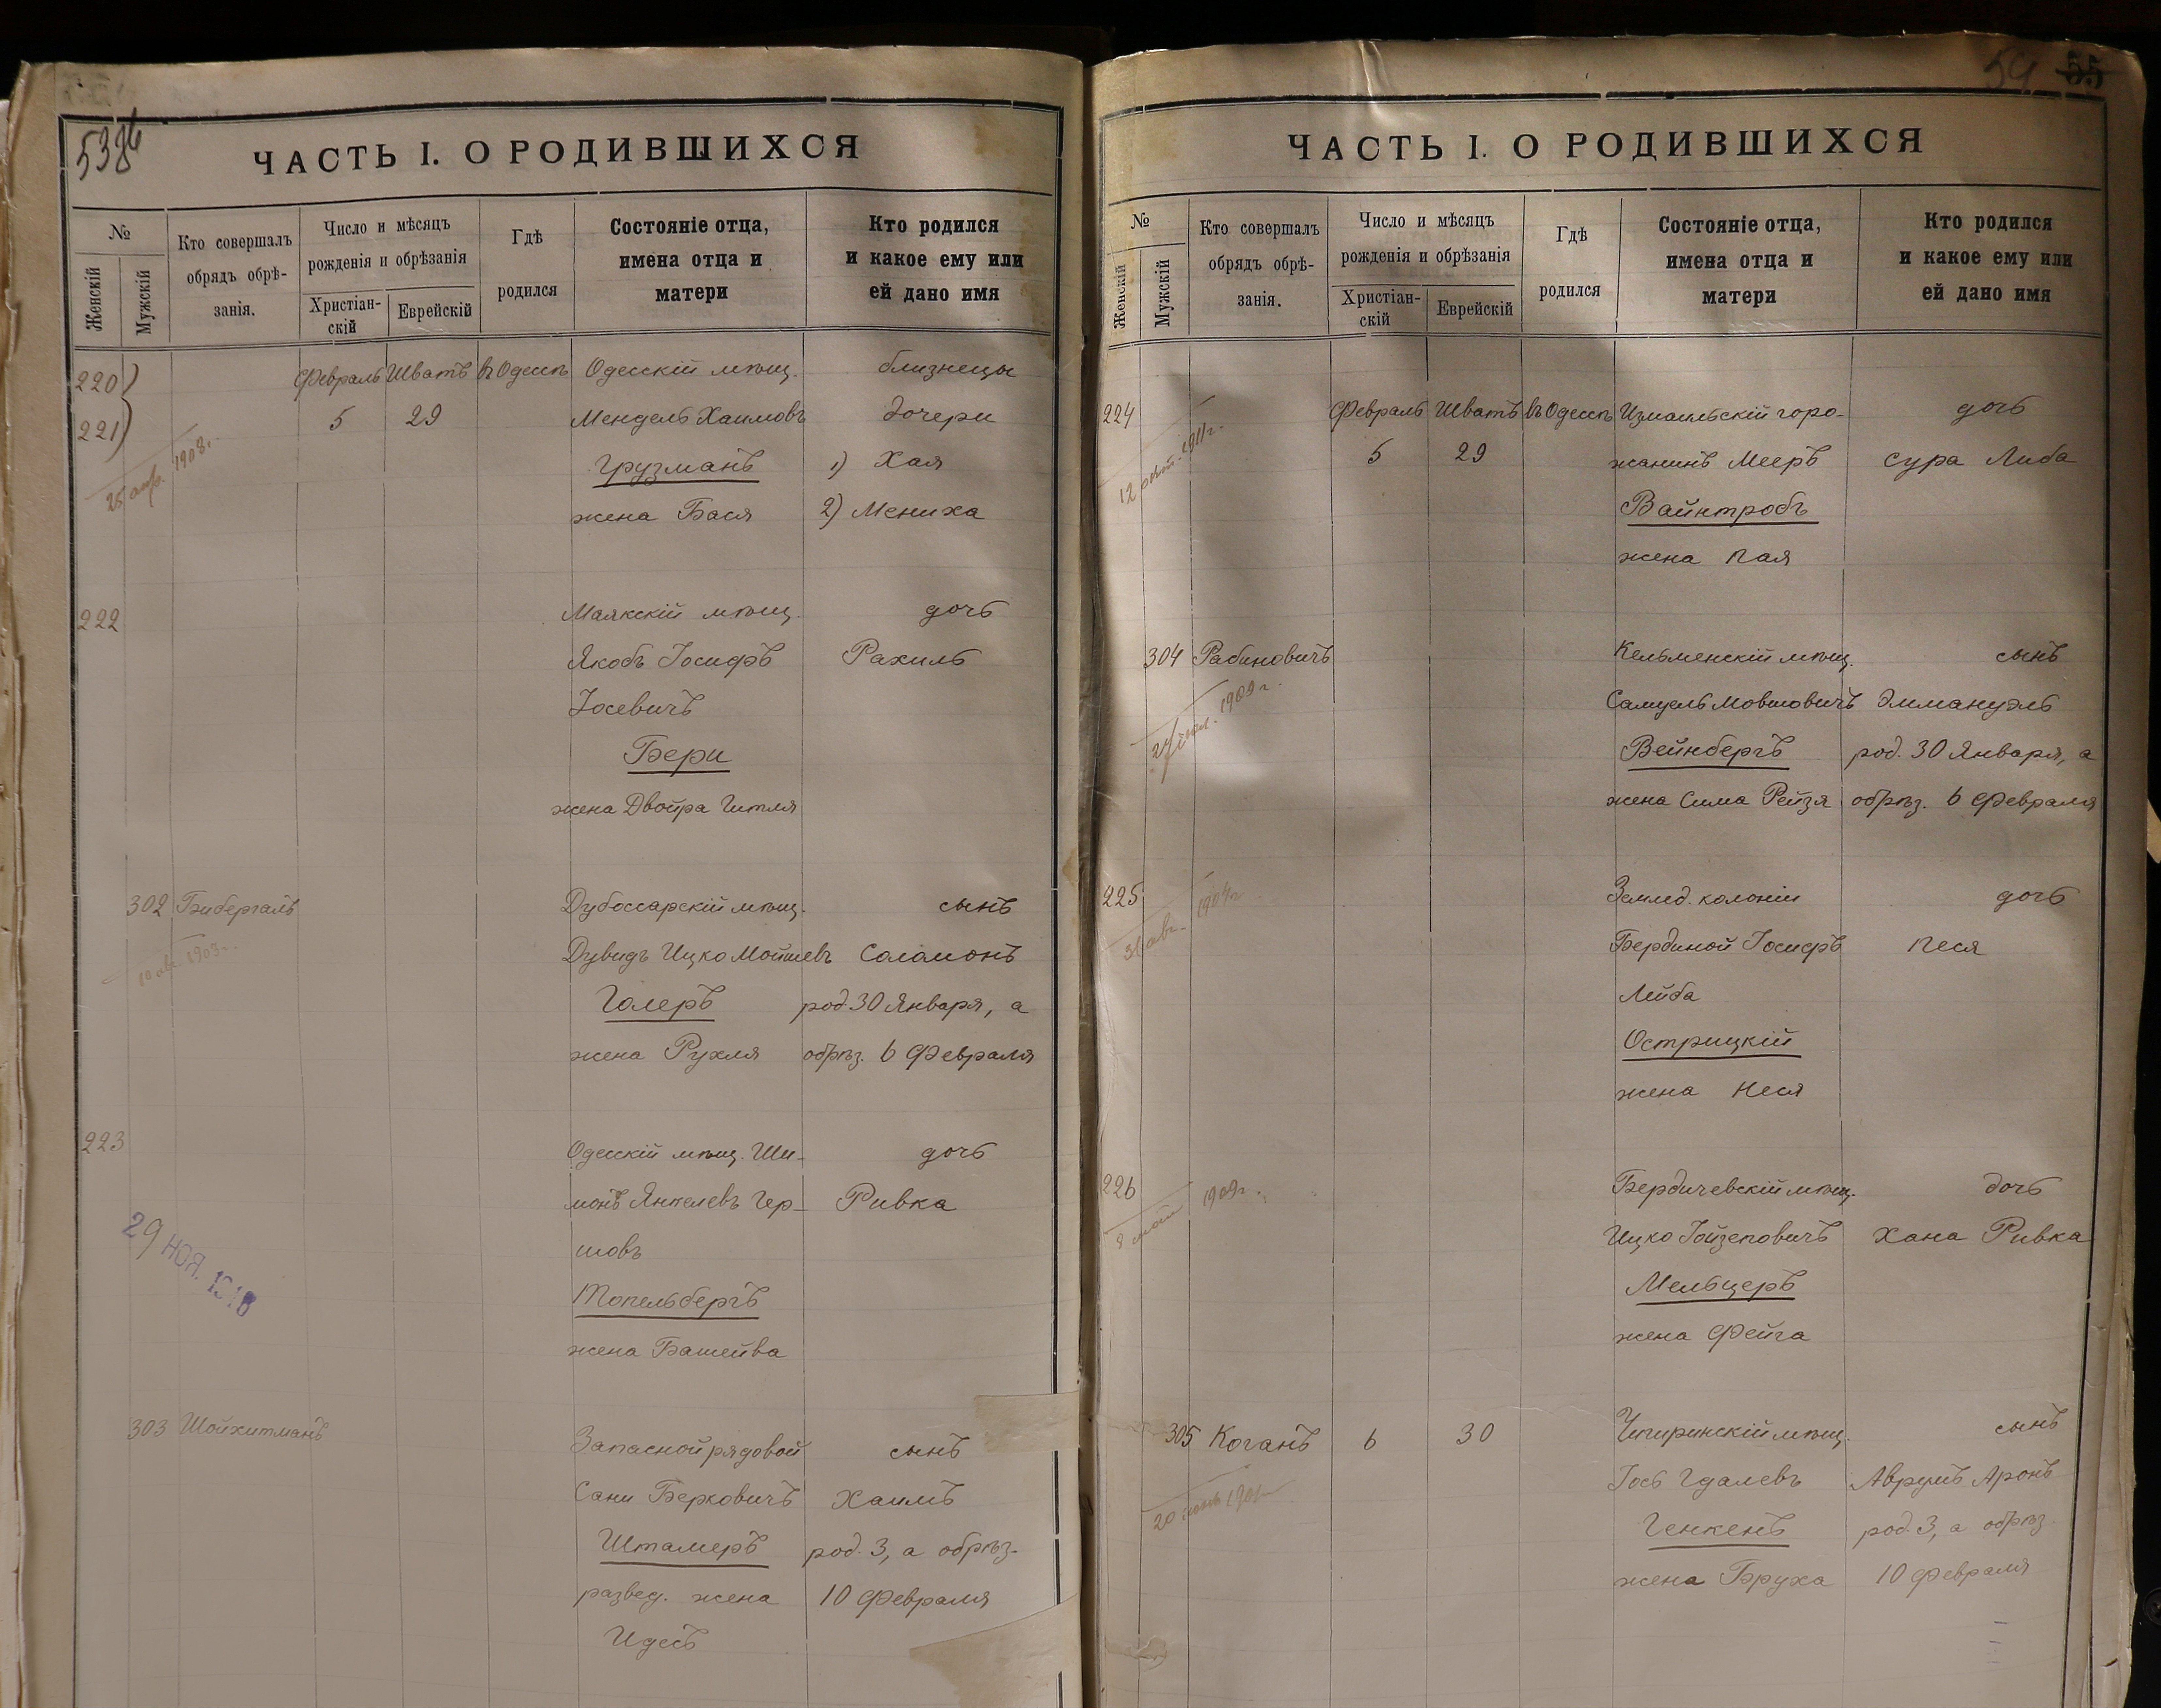 ЧАСТЬ I. О РОДИВШИХСЯ
№
Женскій
Мужскій
Кто совершалъ
обрядъ обрѣ-
занія.
Число и мѣсяцъ
рожденія и обрѣзанія
Христіан-
скій
Еврейскій
Гдѣ
родился
Состояніе отца,
имена отца и
матери
Кто родился
и какое ему или
ей дано имя
220
221
Февраль Шватъ въ Одессѣ Одесскій мѣщ. близнецы
5 29 Мендель Хаимовъ дочери
Грузманъ 1) Хая
жена Бася 2) Мениха
1908 г.
222 Маякскій мѣщ. дочь
Якобъ Іосифъ Рахиль
Іосевичъ
Бери
жена Двойра Гитля
302 Бибергалъ Дубоссарскій мѣщ. сынъ
Дувидъ Ицко Мойшевъ Соломонъ
Голеръ род. 30 Января, а
жена Рухля обрѣз. 6 Февраля
1903
223 Одесскій мѣщ. Ши-
дочь
монъ Янкелевъ Гер-
Ривка
шовъ
Топельбергъ
жена Башейва
29 НОЯ. 1918
303 Шойхитманъ Запасной рядовой сынъ
Сани Берковичъ Хаимъ
Штамеръ род. 3, а обрѣз.
развед. жена 10 Февраля
Идесъ
59 55
ЧАСТЬ I. О РОДИВШИХСЯ
№
Женскій
Мужскій
Кто совершалъ
обрядъ обрѣ-
занія.
Число и мѣсяцъ
рожденія и обрѣзанія
Христіан-
скій
Еврейскій
Гдѣ
родился
Состояніе отца,
имена отца и
матери
Кто родился
и какое ему или
ей дано имя
224 Февраль Шватъ въ Одессѣ Измаильскій горо-
дочь
5 29 жанинъ Мееръ Сура Либа
Вайнтробъ
жена Пая
1911 г.
304 Рабиновичъ Кельменскій мѣщ. сынъ
Самуель Мовшовичъ Эммануэль
Вейнбергъ род. 30 Января, а
жена Сима Рейзя обрѣз. 6 Февраля
1909 г.
225 Землед. колоніи дочь
Бердиной Іосифъ Песя
Лейба
Острицкій
жена Неся
31 авг.
226 Бердичевскій мѣщ. дочь
Ицко Іойзеповичъ Хана Ривка
Мельцеръ
жена Фейга
1909 г.
305 Коганъ 6 30 Чигиринскій мѣщ. сынъ
Іось Гдалевъ Аврумъ Аронъ
Генкенъ род. 3, а обрѣз.
жена Бруха 10 Февраля